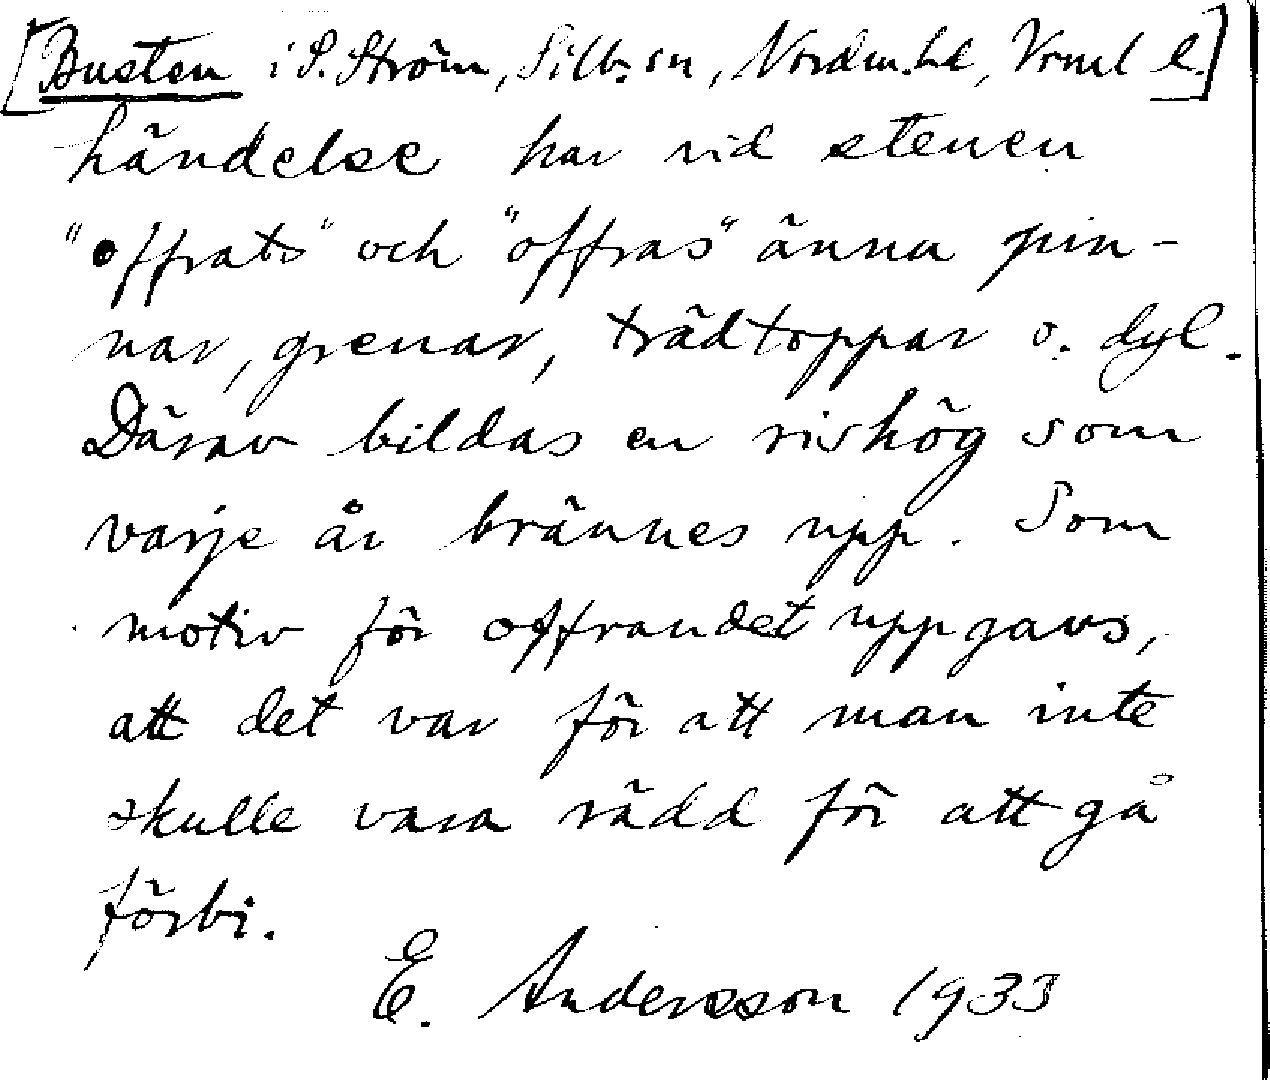 [Busten i S. Ström, Silb.sn, Nordm.hd, Vrml l.]
händelse har vid stenen
"offrats" och "offras" änna pin-
nar, grenar, trädtoppar o. dyl.
Därav bildas en rishög som
varje år brännes upp. Som
motiv för offrandet uppgavs,
att det var för att man inte
skulle vara rädd för att gå
förbi.
E. Andersson 1933